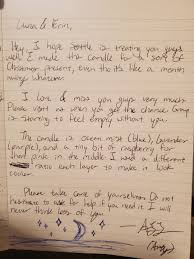 & Erin,
Hey, I hope Seattle is treating you guys
well. I made this candle for a sort of
Christmas present, even tho its like a month
away whatever.
I love & miss you guys very much.
Please visit us when you get the chance. Group
is starting to feel empty without you.
The candle is ocean mist (blue), lavender
(purple), and a tiny bit of raspberry for
pink in the middle. I used a different
ratio each layer to make it look
cooler.
Please take care of yourselves. Do not
hesitate to ask for help if you need it. I will
never think less of you.